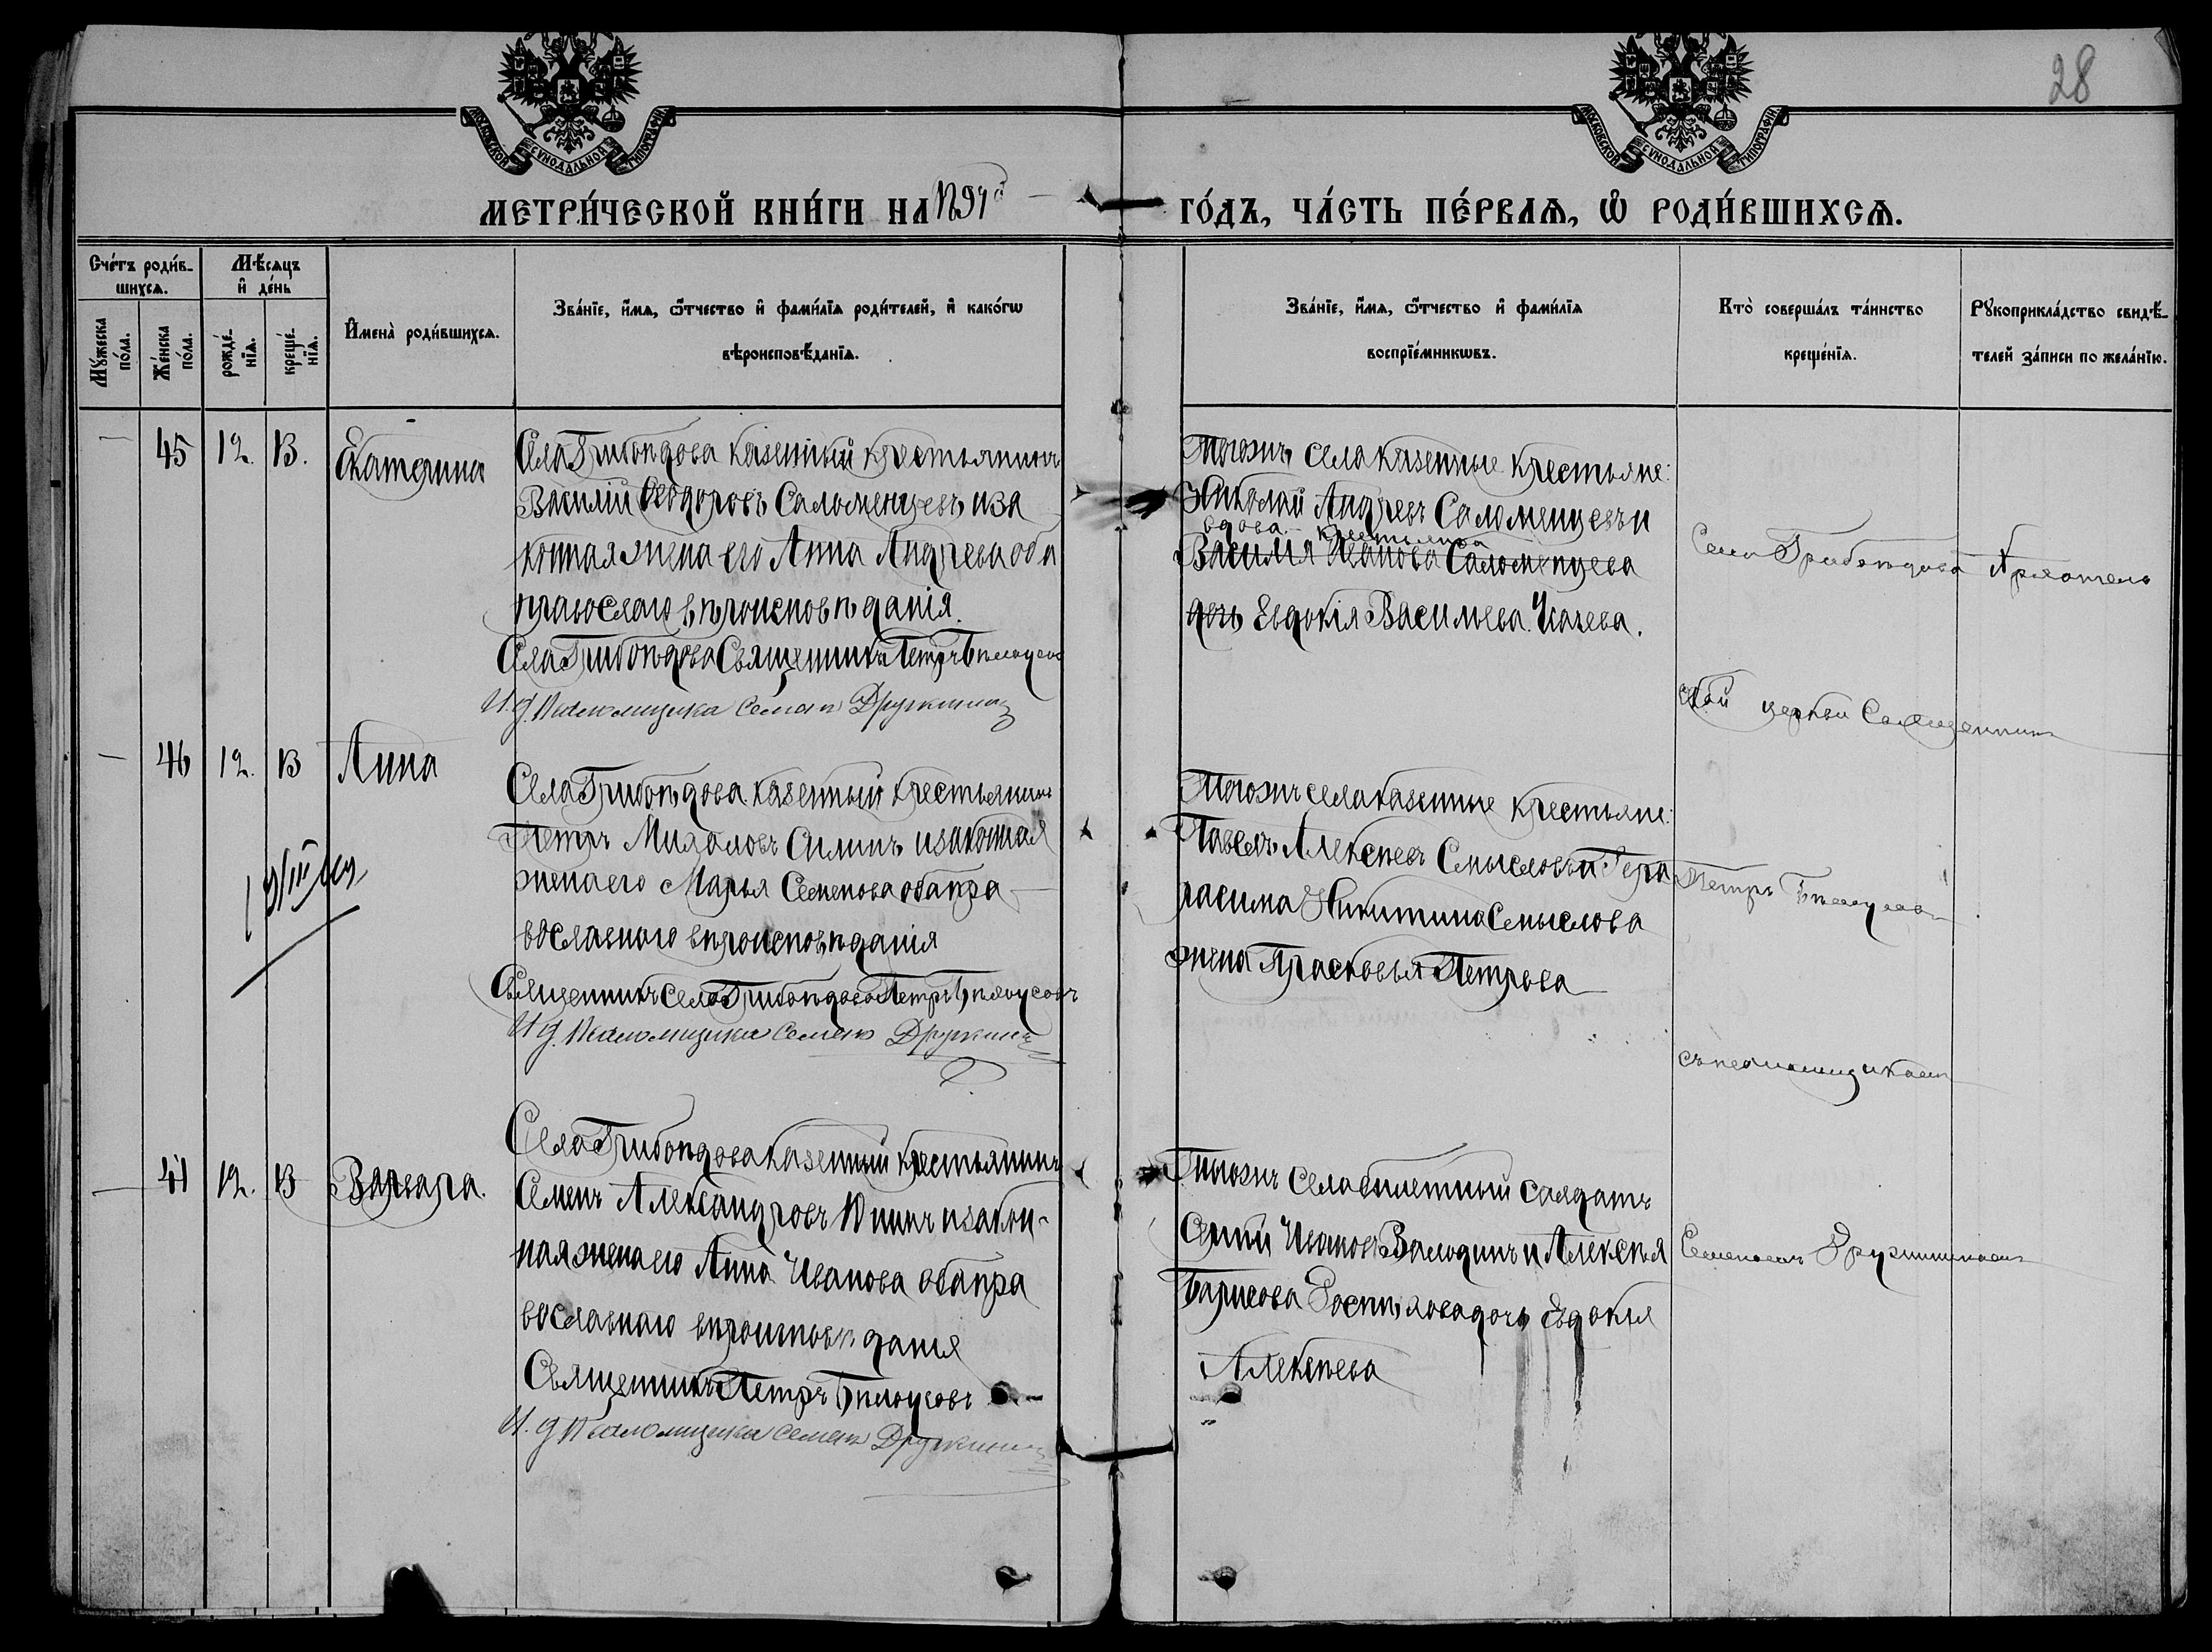 28
МОСКОВСКОЙ СУНОДАЛЬНОЙ ТИПОГРАФІИ
МОСКОВСКОЙ СУНОДАЛЬНОЙ ТИПОГРАФІИ
МЕТРИ́ЧЕСКОЙ КНИ́ГИ НА
ГО́ДЪ, ЧА́СТЬ ПЕ́РВАѦ, Ѡ҆ РОДИ́ВШИХСѦ.
Сче́тъ роди́в-
шихсѧ.
Мꙋ́жеска по́ла.
Же́нска по́ла.
Мѣ́сѧцъ
и҆ де́нь
рожде́-
нїѧ.
креще́-
нїѧ.
И҆мена̀ роди́вшихсѧ.
Зва́нїе, и҆́мѧ, ѻ҆́тчество и҆ фами́лїѧ роди́телей, и҆ како́гѡ
вѣроисповѣ́данїѧ.
Зва́нїе, и҆́мѧ, ѻ҆́тчество и҆ фами́лїѧ
воспрїе́мникѡвъ.
Кто̀ соверша́лъ та́инство
креще́нїѧ.
Рꙋкоприкла́дство свидѣ́-
телей за́писи по жела́нїю.
— 45 12. 13. Екатерина
Села Грибоѣдова казенный крестьянинъ
Василій Ѳеодоровъ Саломенцевъ и за
конная жена его Анна Андреева оба
православнаго вѣроисповѣданія.
Села Грибоѣдова Священникъ Петръ Бѣлоусовъ
И. д. Псаломщика Семенъ Дружининъ
Тогожъ села казенные крестьяне:
Николай Андреевъ Саломенцевъ и
вдова крестьянка
Василія Иванова Саломенцева
дочь Евдокія Васильева Исаева.
Села Грибоѣдова Архангель
ской церкви Священникъ
Петръ Бѣлоусовъ
съ псаломщикомъ
Семеномъ Дружининымъ
— 46 12. 13 Анна
Села Грибоѣдова казенный крестьянинъ
Петръ Михаловъ Силинъ и законная
жена его Марья Семенова оба пра
вославнаго вѣроисповѣданія
Священникъ села Грибоѣдова Петръ Бѣлоусовъ
И д. Псаломщика Семенъ Дружининъ
Тогожъ села казенные крестьяне:
Павелъ Алексѣевъ Смысловъ и Гера
расима Никитина Смыслова
жена Прасковья Петрова
— 47 12. 13 Варвара.
Села Грибоѣдова казенный крестьянинъ
Семенъ Александровъ Юшинъ и закон-
ная жена его Анна Иванова оба пра
вославнаго вѣроисповѣданія
Священникъ Петръ Бѣлоусовъ
И. д Псаломщика Семенъ Дружининъ
Тогожъ села билетный салдатъ
Сергій Ивановъ Валодинъ и Алексѣя
Барисова дочь Евдокія
Алексѣева